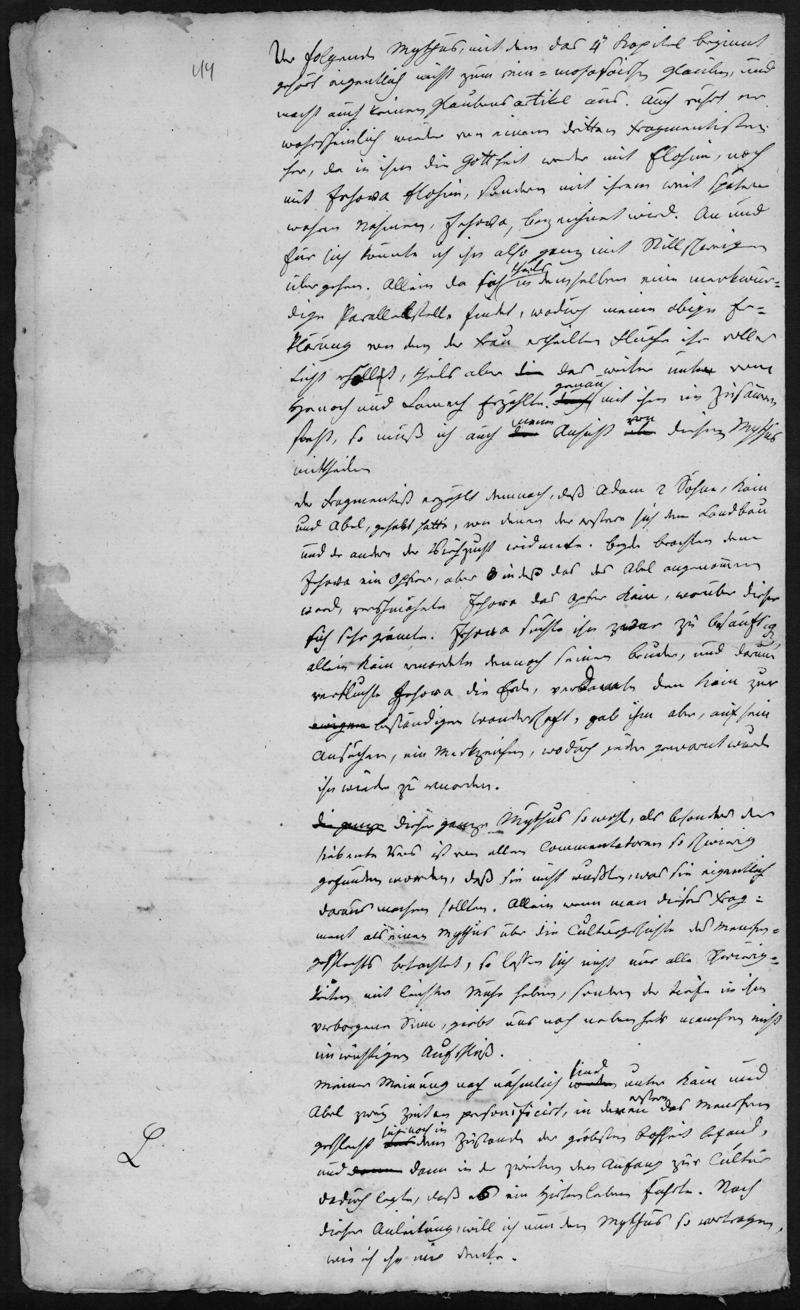 114
Der folgende Mythus, mit dem das 4te Kapitel beginnt
gehört eigentlich nicht zum rein=mosaischen Glauben, und
macht auch keinen Glaubensartikel aus. Auch rührt er
wahrscheinlich wieder von einem dritten Fragmentisten
her, da in ihm die Gottheit weder mit Elohim, noch
mit Jehova Elohim, sondern mit ihrem weit spätern
wahren Nahmen, Jehova, bezeichnet wird. An und
für sich könnte ich ihn also ganz mit Stillschweigen
übergehen. Allein da sich theils in demselben eine merkwür=
dige Parallelstelle findet, wodurch meine obige Er=
klärung von dem der Frau ertheilten Fluche ihr volles
Licht erhellt, theils aber das weiter unten vom
Henoch und Lamech Erzählte genau mit ihm im Zusammen
steht, so muß ich auch meine Ansicht von diesem Mythus
mittheilen
Der Fragmentist erzählt demnach, daß Adam 2 Söhne, Kain
und Abel, gehabt hatte, von denen der erstere sich dem Landbau
und der andere der Viehzucht widmete. Beyde brachten dem
Jehova ein Opfer, aber indeß das des Abel angenommen
ward, verschmähete Jehova das Opfer Kain, worüber dieser
sich sehr grämte. Jehova suchte ihn zwar zu besänftig
allein Kain ermordete dennoch seinen Bruder, und darum
verfluchte Jehova die Erde, verdamte den Kain zur
ewigen beständigen Wanderschaft, gab ihm aber, auf sein
Ansuchen, ein Merkzeichen, wodurch jeder gewarnt wurde
ihn wieder zu ermorden.
die ganze Dieser ganze Mythus sowohl, als besonders der
siebente Vers ist von allen Commentatoren so schwierig
gefunden worden, daß sie nicht wußten, was sie eigentlich
daraus machen sollten. Allein wenn man dieses Frag=
ment als einen Mythus über die Culturgeschichte des Menschen=
geschlechts betrachtet, so lassen sich nicht nur alle Schwierig=
keiten mit leichter Mühe heben, sondern der tiefe in ihm
verborgene Sinn, giebt uns noch nebenher manchen nicht
unwichtigen Aufschluß.
Meiner Meinung nach nähmlich sind unter Kain und
Abel zwey Zeiten personificirt, in deren erstern das Menschen
geschlecht sich noch in dem Zustande der gröbsten Rohheit befand,
und dann in der zweiten den Anfang zur Cultur
dadurch legte, daß es ein Hirtenleben führte. Nach
dieser Anleitung will ich nun den Mythus so vortragen,
wie ich ihn mir denke.
L